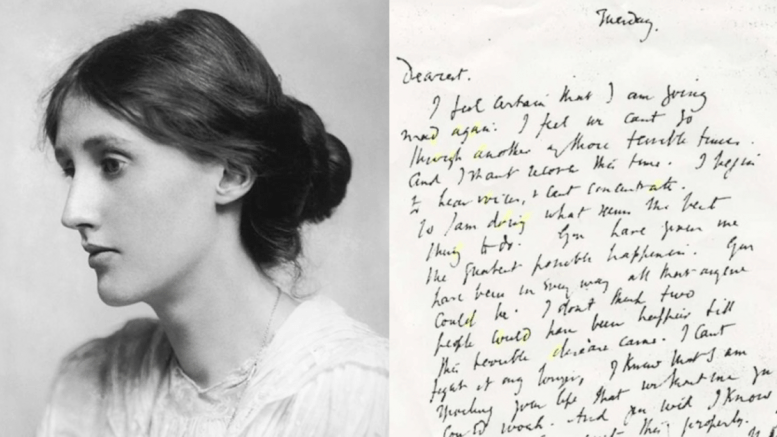 Tuesday.
Dearest.
I feel certain that I am going
mad again. I feel we cant go
through another of those terrible times.
And I shant recover this time. I begin
to hear voices, & cant concentrate.
So I am doing what seems the best
thing to do. You have given me
the greatest possible happiness. You
have been in every way all that anyone
could be. I dont think two
people could have been happier till
this terrible disease came. I cant
fight it any longer, I know that I am
spoiling your life that without me you
could work. And you will I know
this properly.